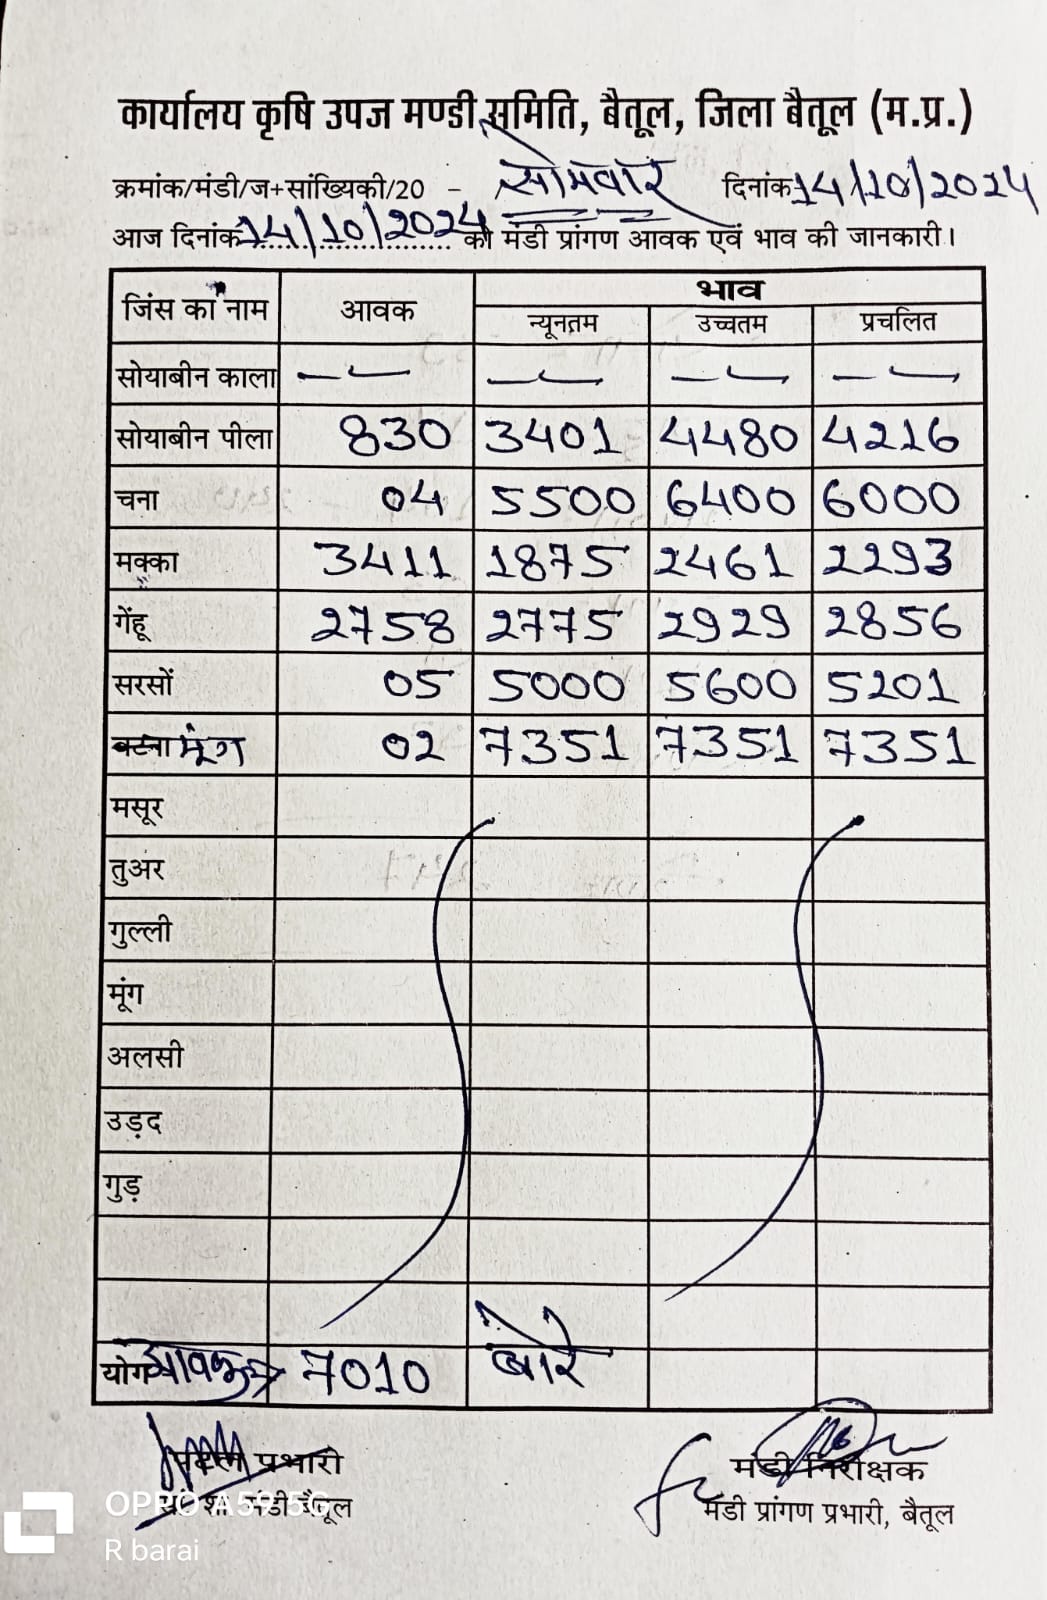 कार्यालय कृषि उपज मण्डी समिति, बैतूल, जिला बैतूल (म.प्र.)
क्रमांक/मंडी/ज+सांख्यिकी/20 - सोमवार दिनांक 14/10/2024
आज दिनांक 14/10/2024 को मंडी प्रांगण आवक एवं भाव की जानकारी।
जिंस का नाम आवक भाव
न्यूनतम उच्चतम प्रचलित
सोयाबीन काला — — — —
सोयाबीन पीला 830 3401 4480 4216
चना 04 5500 6400 6000
मक्का 3411 1875 2461 2293
गेंहू 2758 2775 2929 2856
सरसों 05 5000 5600 5201
बटना मूंग 02 7351 7351 7351
मसूर
तुअर
गुल्ली
मूंग
अलसी
उड़द
गुड़
योग आवक → 7010 बोरे
प्रभारी मंडी निरीक्षक
मंडी बैतूल मंडी प्रांगण प्रभारी, बैतूल
OPPO A59 5G
R barai